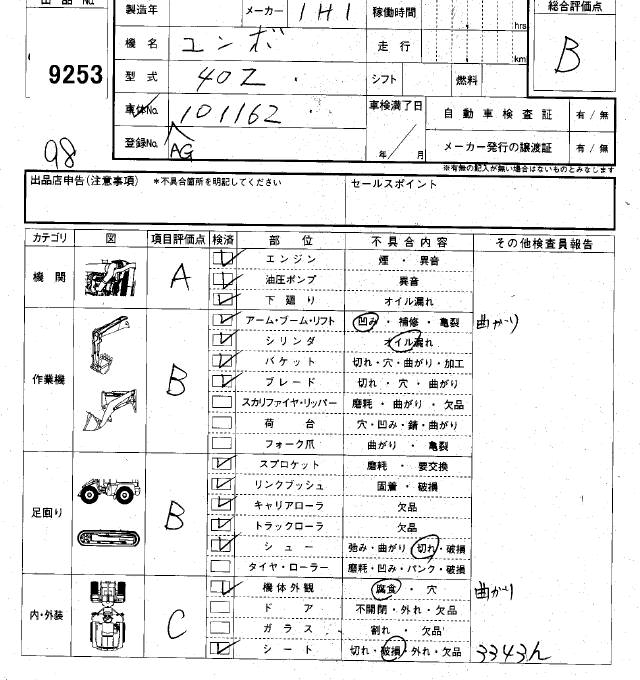 出品 No.
9253
98
製造年 メーカー IHI 稼働時間 hrs
機名 ユンボ 走行 km
型式 40Z シフト 燃料
車体No. 101162 車検満了日 年/月
登録No. AG
総合評価点
B
自動車検査証 有/無
メーカー発行の譲渡証 有/無
※有無の記入が無い場合はないものとみなします
出品店申告(注意事項) *不具合箇所を明記してください セールスポイント
カテゴリ 図 項目評価点 検済 部位 不具合内容 その他検査員報告
機関 A
エンジン 煙・異音
油圧ポンプ 異音
下廻り オイル漏れ
作業機 B
アーム・ブーム・リフト 凹み・補修・亀裂 曲がり
シリンダ オイル漏れ
バケット 切れ・穴・曲がり・加工
ブレード 切れ・穴・曲がり
スカリファイヤ・リッパー 磨耗・曲がり・欠品
荷台 穴・凹み・錆・曲がり
フォーク爪 曲がり・亀裂
足回り B
スプロケット 磨耗・要交換
リンクブッシュ 固着・破損
キャリアローラ 欠品
トラックローラ 欠品
シュー 弛み・曲がり・切れ・破損
タイヤ・ローラー 磨耗・凹み・パンク・破損
内・外装 C
機体外観 腐食・穴 曲がり
ドア 不開閉・外れ・欠品
ガラス 割れ・欠品
シート 切れ・破損・外れ・欠品 3343h